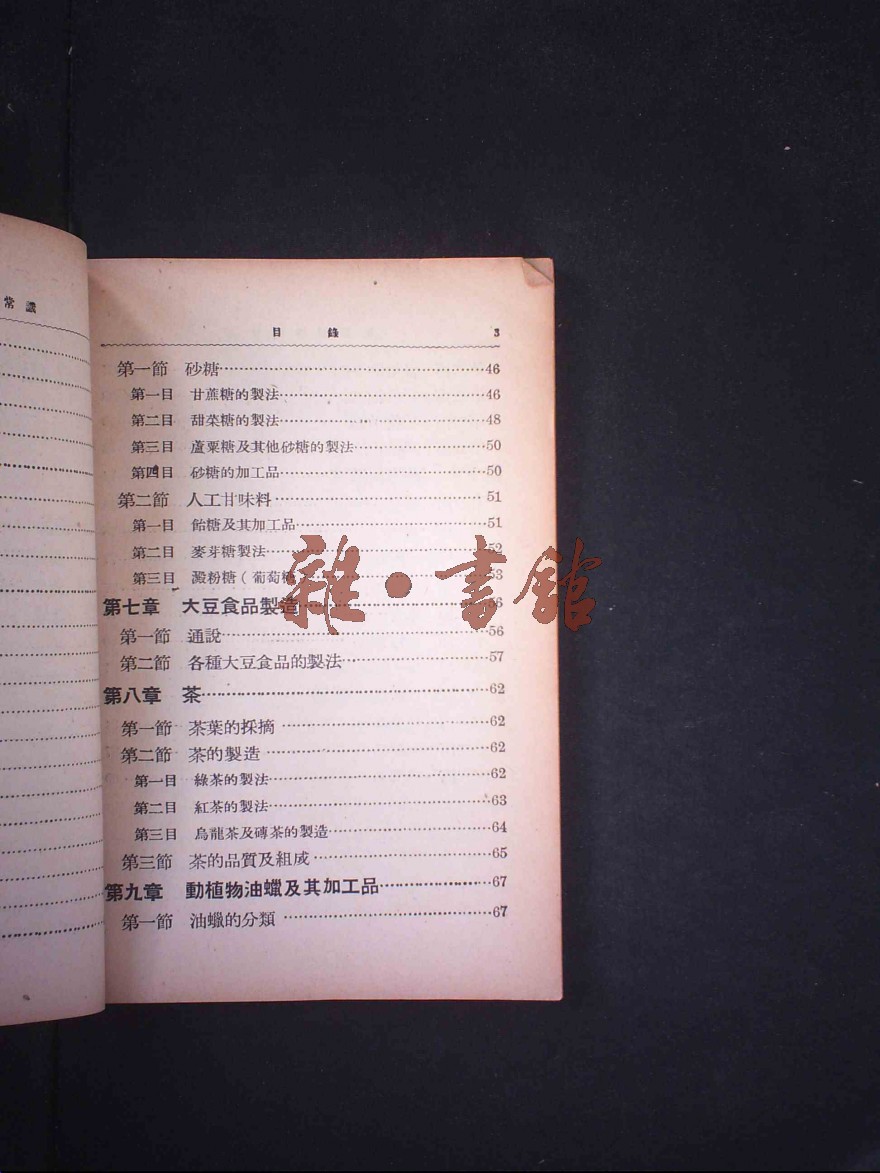 常識
目錄 3
第一節 砂糖 46
第一目 甘蔗糖的製法 46
第二目 甜菜糖的製法 48
第三目 蘆粟糖及其他砂糖的製法 50
第四目 砂糖的加工品 50
第二節 人工甘味料 51
第一目 飴糖及其加工品 51
第二目 麥芽糖製法 52
第三目 澱粉糖(葡萄糖 53
第七章 大豆食品製造 56
第一節 通說 56
第二節 各種大豆食品的製法 57
第八章 茶 62
第一節 茶葉的採摘 62
第二節 茶的製造 62
第一目 綠茶的製法 62
第二目 紅茶的製法 63
第三目 烏龍茶及磚茶的製造 64
第三節 茶的品質及組成 65
第九章 動植物油蠟及其加工品 67
第一節 油蠟的分類 67
雜·書館